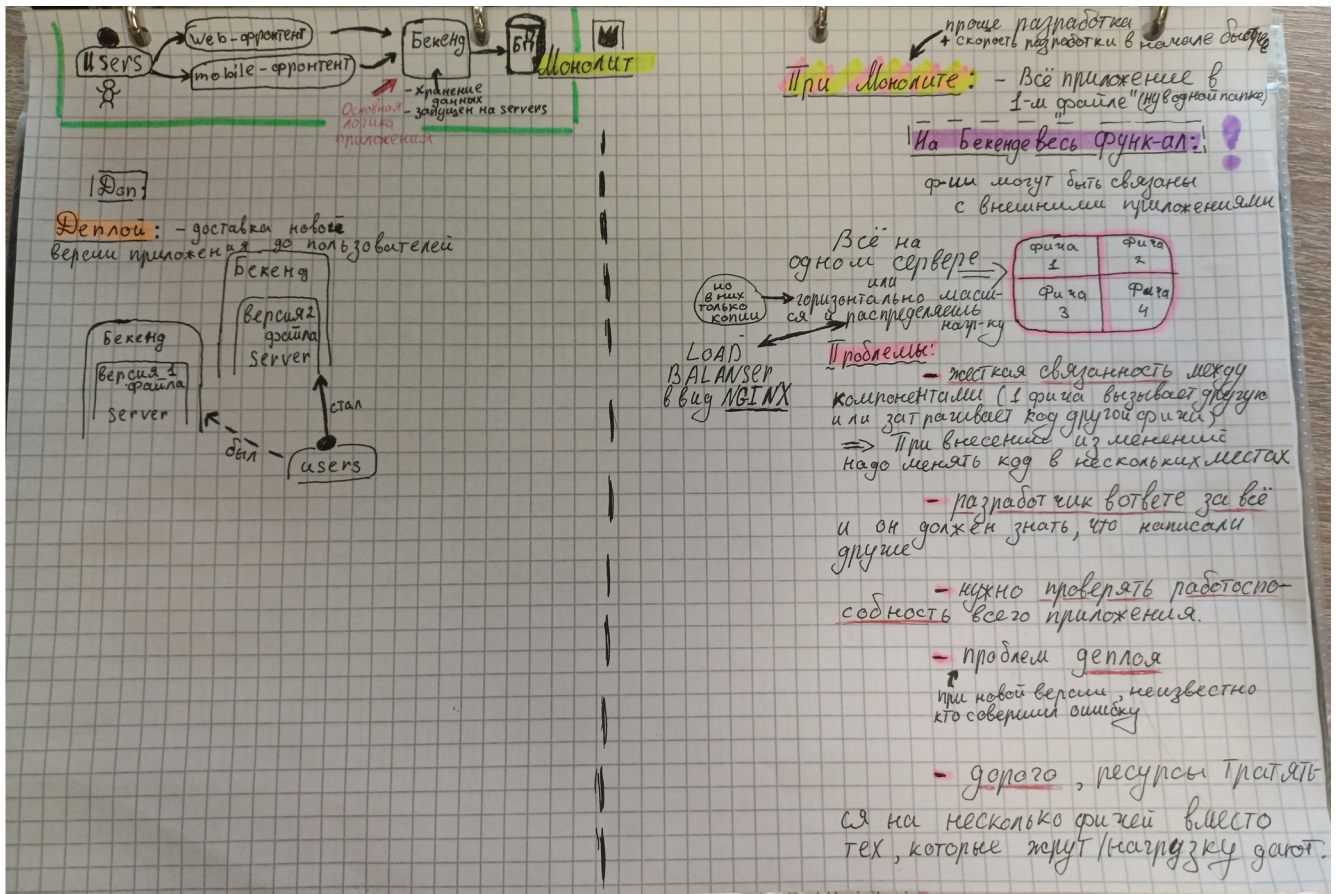 Users
web-фронтент
mobile-фронтент
Бекенд
БД
Монолит
Основная
логика
приложения
- хранение
данных
- запущен на servers
Доп:
Деплой: - доставка новое
версии приложения до пользователей
Бекенд
версия 2
файла
Server
Бекенд
версия 1
файла
Server
был
стал
users
проще разработка
+ скорость разработки в начале быстрее
При Монолите: - Всё приложение в
1-м "файле" (ну в одной папке)
На Бекенде весь функ-ал: !
ф-ии могут быть связаны
с внешними приложениями
Всё на
одном сервере
или
горизонтально масш-
ся и распределяешь
нагр-ку
но
в них
только
копии
Фича
1
Фича
2
Фича
3
Фича
4
LOAD
BALANSER
в вид NGINX
Проблемы:
- жесткая связанность между
компонентами (1 фича вызывает другую
или затрагивает код другой фичи)
=> При внесении изменений
надо менять код в нескольких местах
- разработчик в ответе за всё
и он должен знать, что написали
другие
- нужно проверять работоспо-
собность всего приложения.
- проблем деплоя
при новой версии, неизвестно
кто совершил ошибку
- дорого, ресурсы тратять
ся на несколько фичей вместо
тех, которые жрут/нагрузку дают.